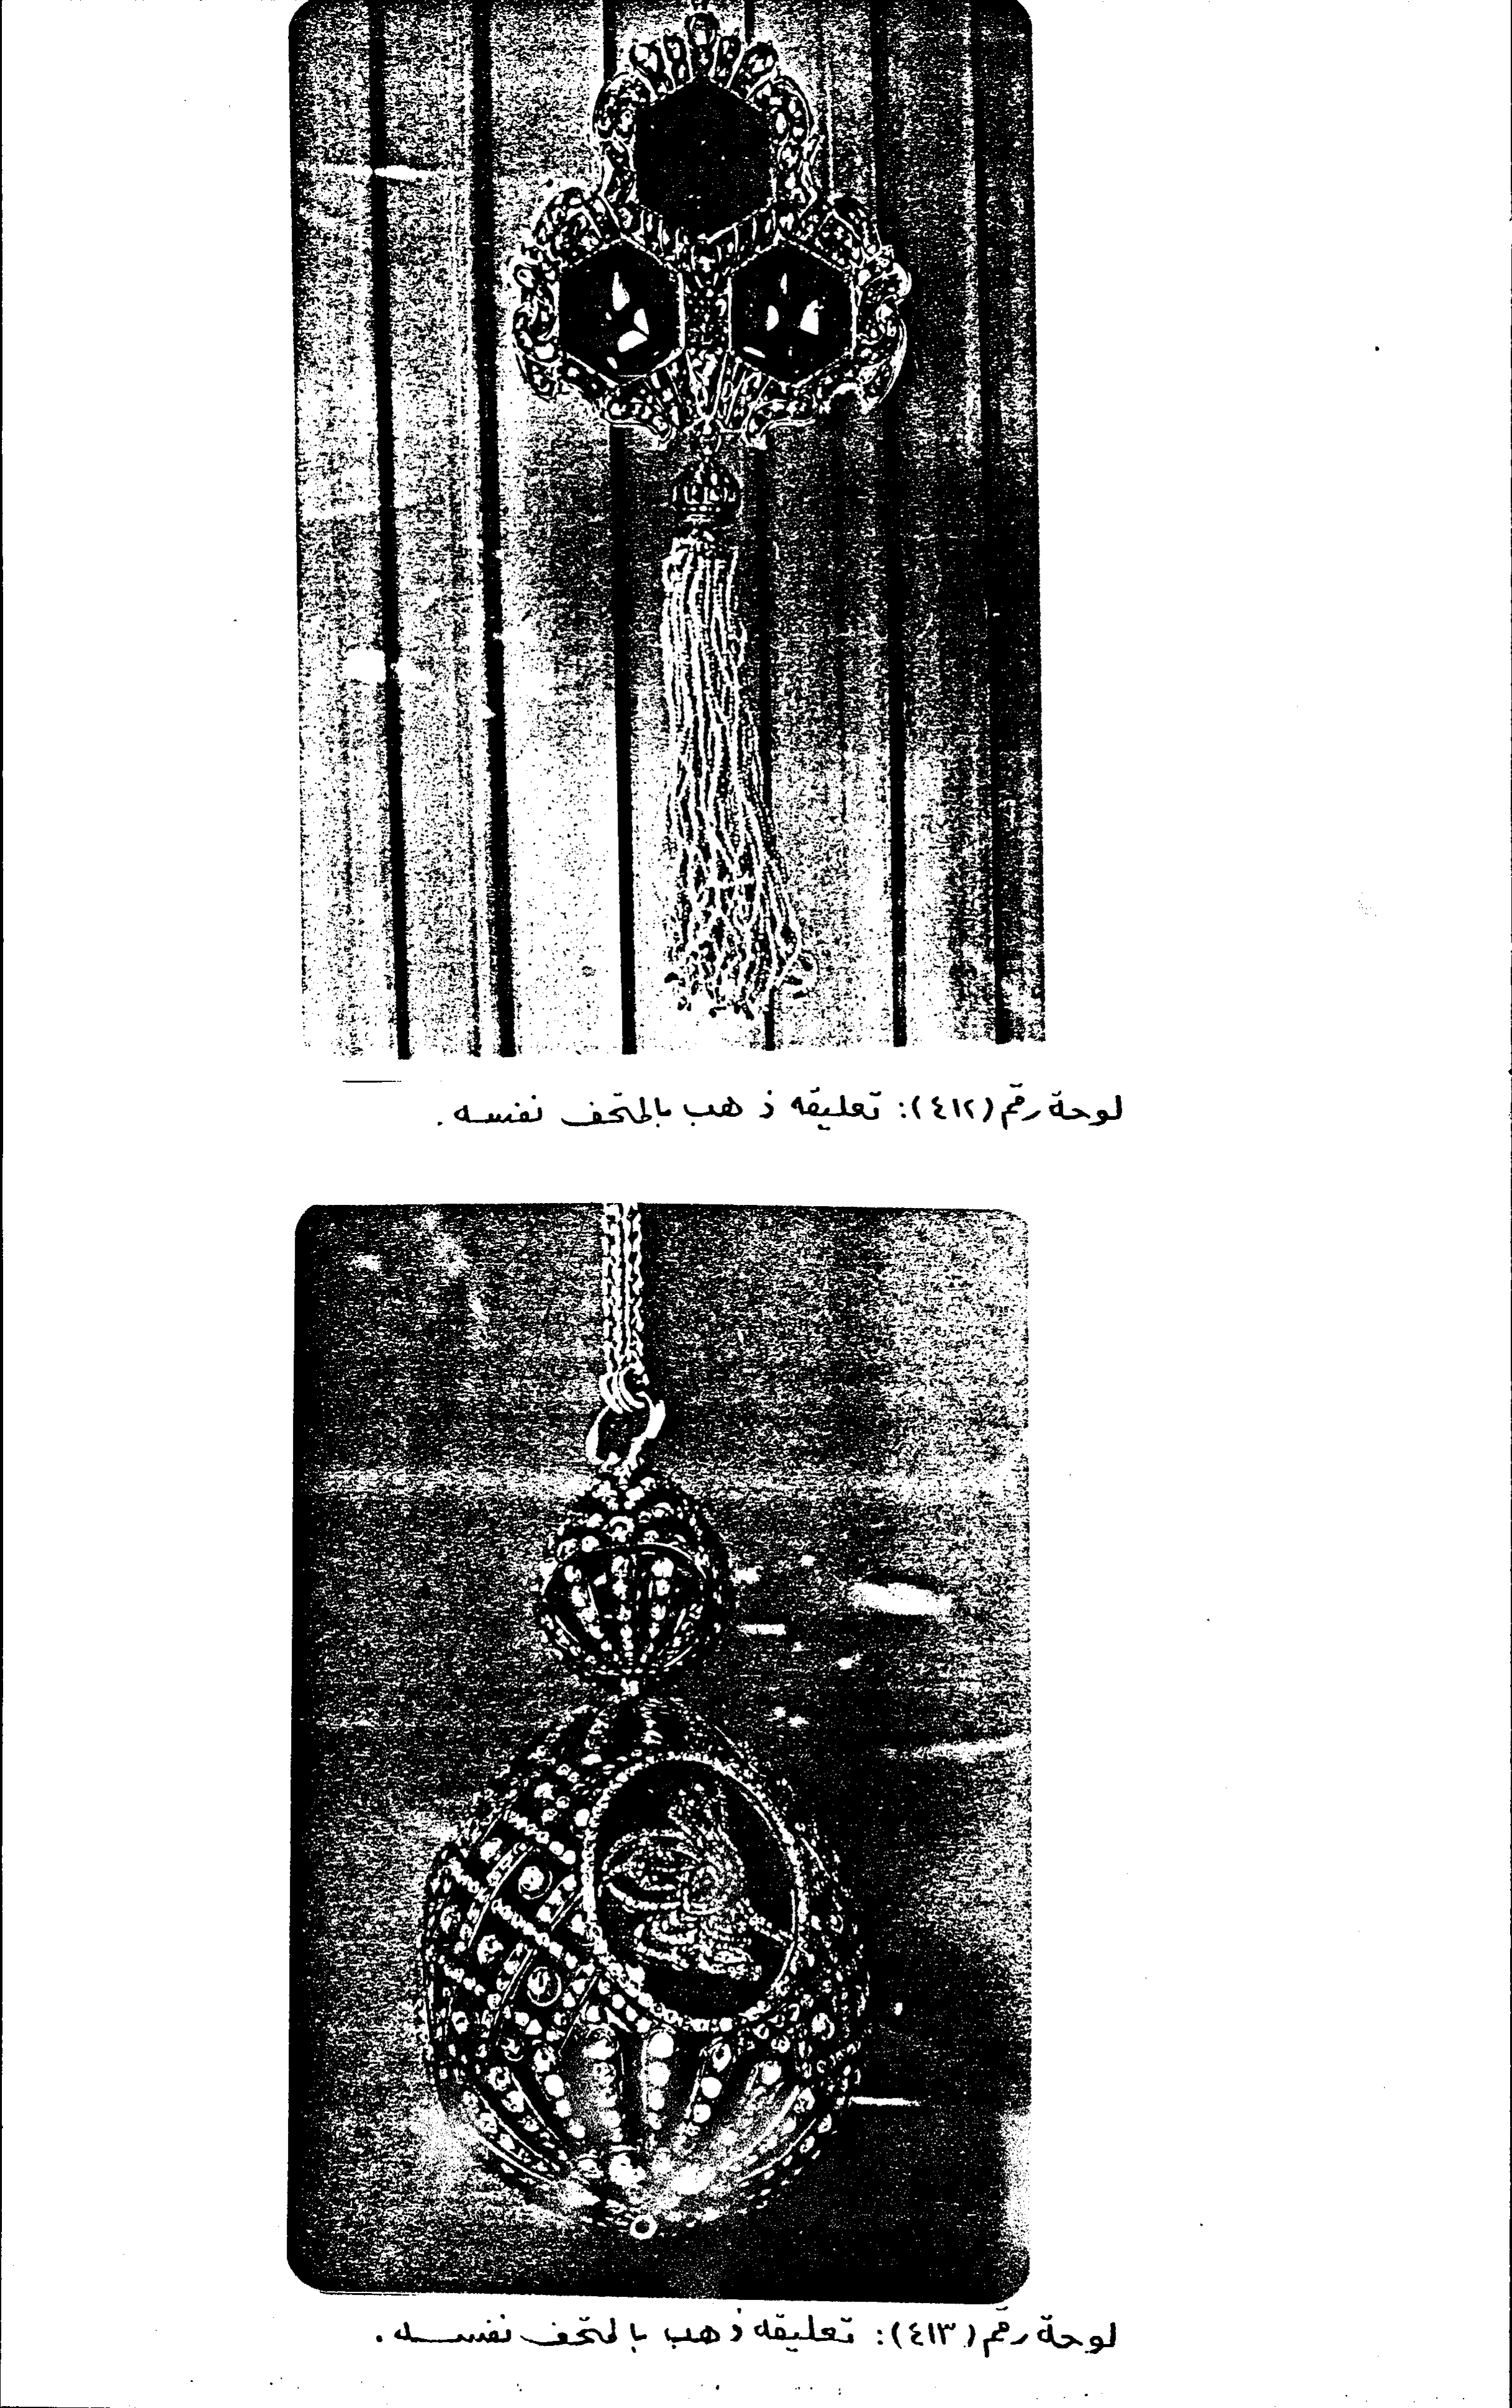 لوحة رقم (٤١٢): تعليقه ذهب بالمتحف نفسه.
لوحة رقم (٤١٣): تعليقه ذهب بالمتحف نفسه.